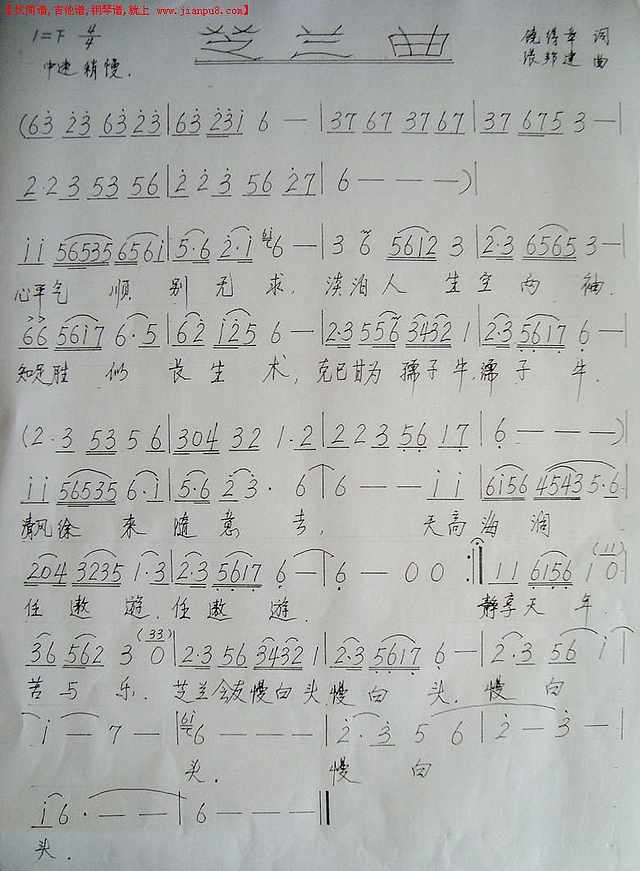 【找简谱,吉他谱,钢琴谱,就上 www.jianpu8.com】
芝兰曲
1=F 4/4
饶绪奉 词
中速稍慢.
张邦建 曲
(63 23 63 23|63 231 6 —|37 67 37 67|37 675 3 —|
2·2 3 53 56|2 2 3 56 27|6 — — —)|
1 1 56535 6561|5·6 2·1 6 —|3 6 5612 3|2·3 6565 3 —|
心平气 顺 别无求. 淡泊人 生空两袖.
66 5617 6·5|62 125 6 —|2·3 556 3432 1|2·3 5617 6 —|
知足胜 似 长生术, 克己甘为孺子牛. 孺子牛.
(2·3 53 5 6|304 32 1·2|2 2 3 56 17|6 — — —)|
1 1 56535 6·1|5·6 2 3· 6|6 — — 1 1|6156 4543 5·6|
清风徐 来随意去, 天高海阔
204 3235 1·3|2·3 5617 6 —|6 — 0 0 :||1 1 6156 1 0 (11)|
任遨遊. 任遨遊. 静享天年.
36 562 3 0 (33)|2·3 56 3432 1|2·3 5617 6 —|2·3 56 1|
苦与乐. 芝兰会友慢白头 慢白头. 慢白
1 — 7 —|6 — — —|2·3 5 6|2 — 3 —|
头. 慢白
16· — —|6 — — —||
头.